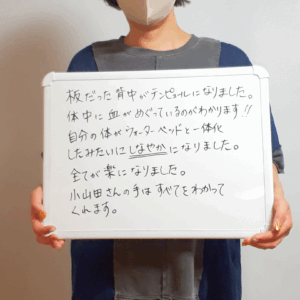 板だった背中がテンピュールになりました。
体中に血がめぐっているのがわかります!!
自分の体がウォーターベッドと一体化
したみたいにしなやかになりました。
全てが楽になりました。
小山田さんの手はすべてをわかって
くれます。